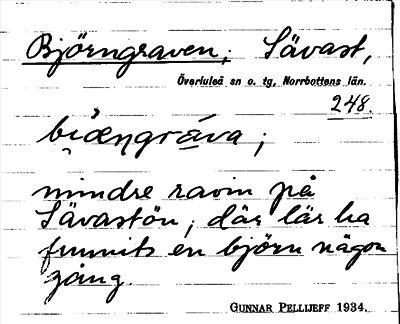 Björngraven; Sävast,
Överluleå sn o. tg, Norrbottens län.
248.
bi̯ȧ̈ŋgrä́va;
mindre ravin på
Sävastön; där lär ha
funnits en björn någon
gång.
GUNNAR PELLIJEFF 1934.